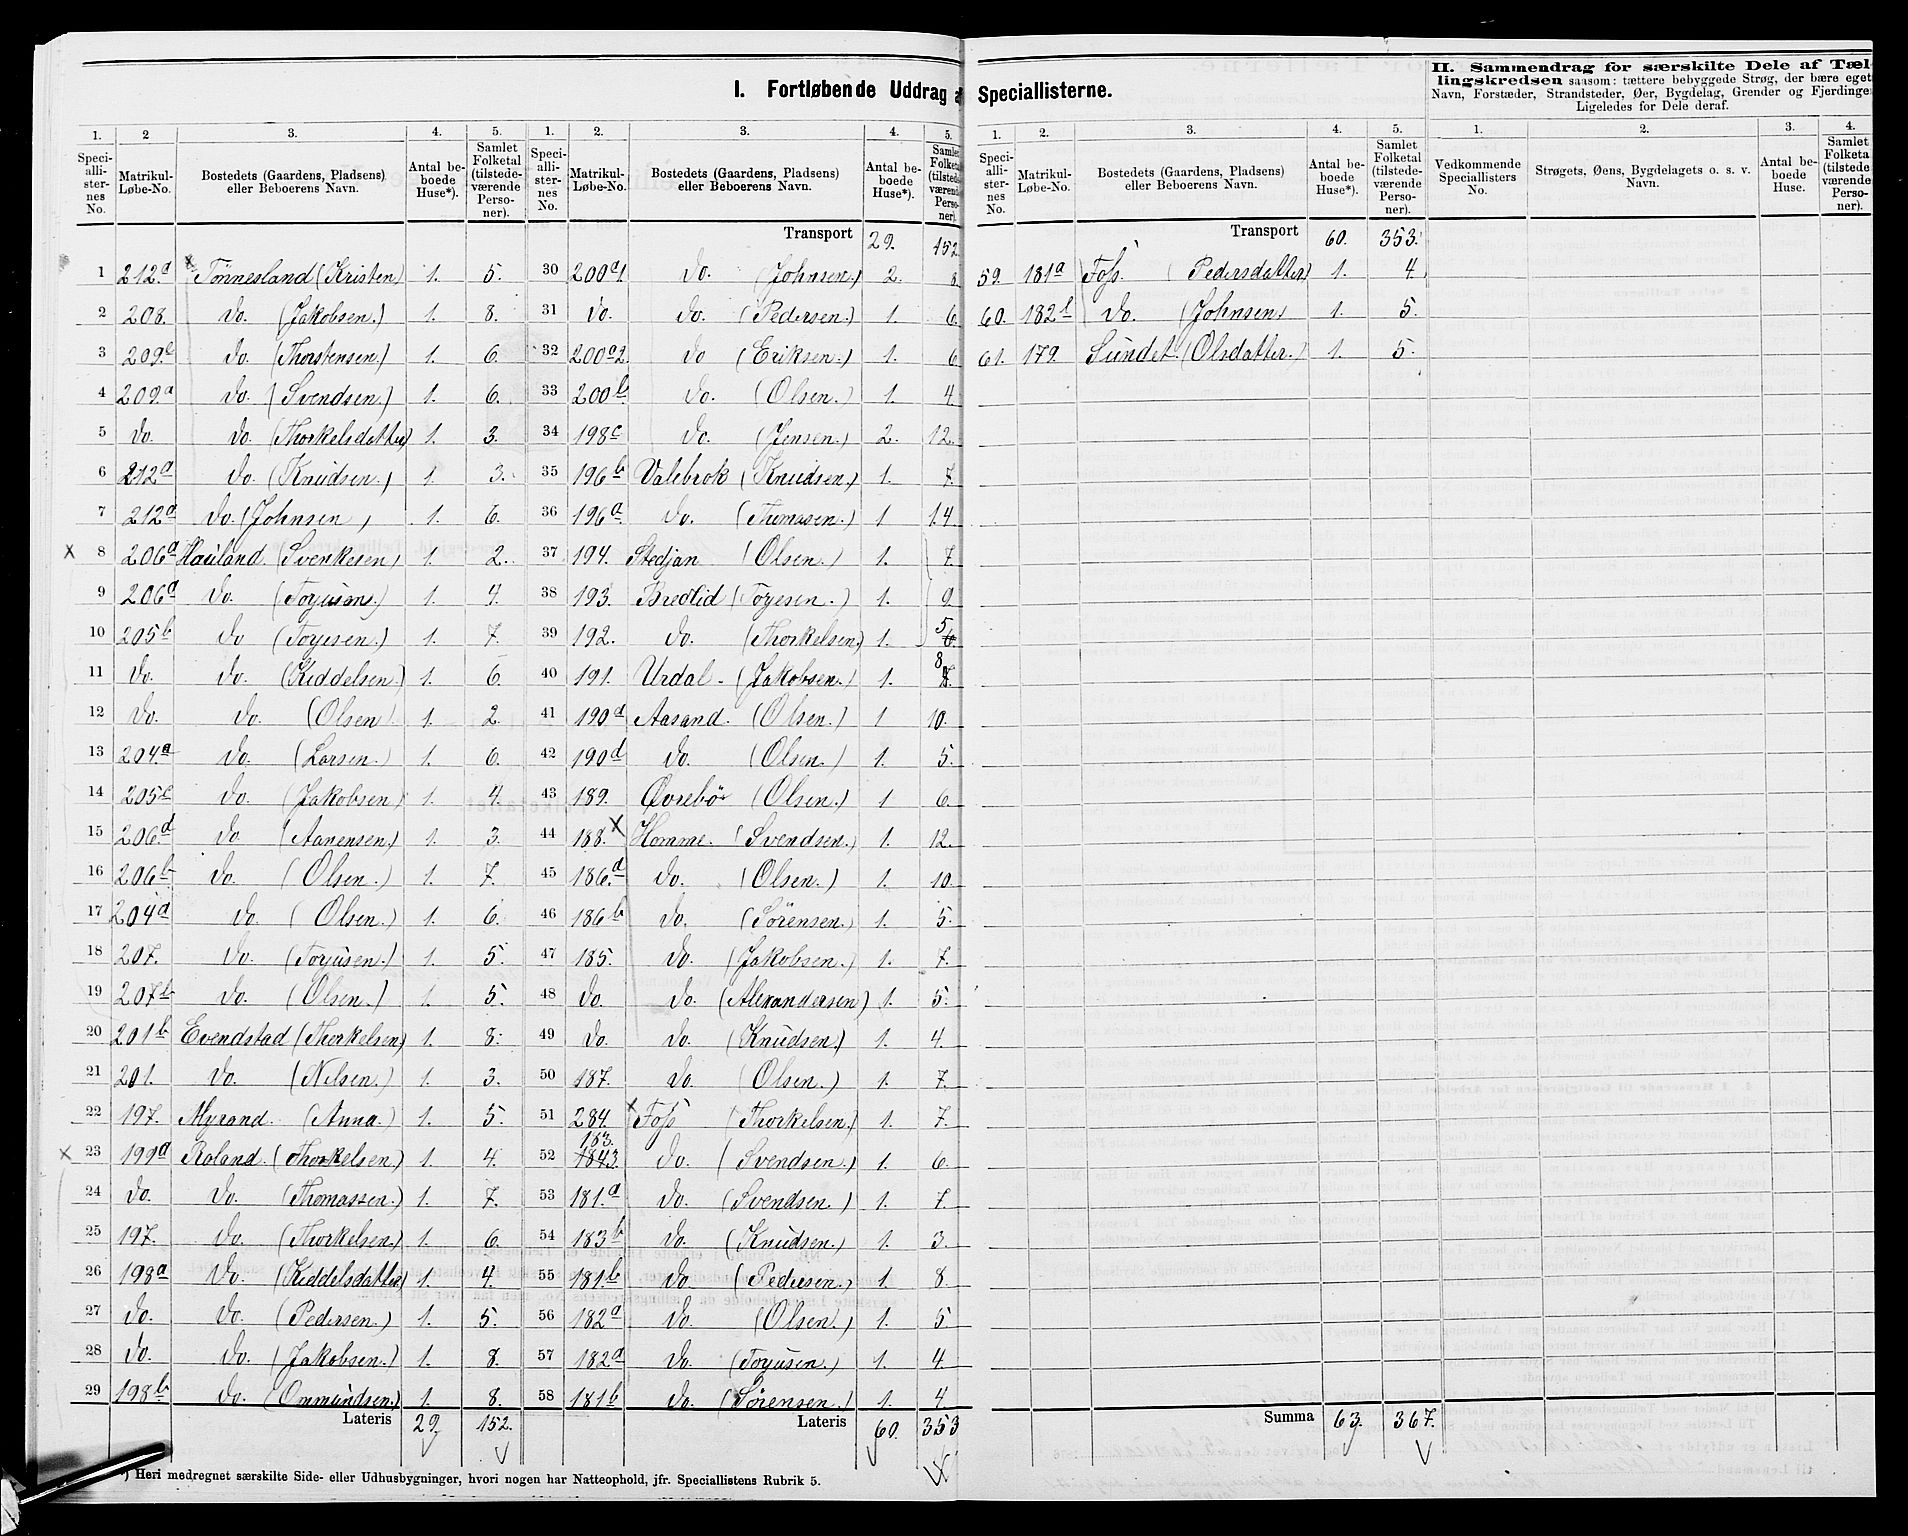 I. Fortløbende Uddrag a
1. 2 3. 4. 5.
Speciallisternes No. Matrikul-Løbe-No. Bostedets (Gaardens, Pladsens) eller Beboerens Navn. Antal beboede Huse*). Samlet Folketal (tilstedeværende Personer).
1 212a Tönnesland (Kristen) 1. 5.
2 208. do. (Jakobsen.) 1. 8.
3 209b do. (Thorstensen.) 1. 6.
4 209.a do. (Svendsen.) 1. 6.
5 do. do. (Thorkelsdatter) 1. 3.
6 212a do. (Knudsen.) 1. 3.
7 212a do. (Johnsen) 1. 6.
x 8 206a Hauland. (Svenkesen) 1. 2.
9 206a do. (Torjusens.) 1. 4.
10 205b do (Torjesen.) 1. 7.
11 do. do. (Kiddelsen.) 1. 6.
12 do. do. (Olsen) 1. 2.
13 204a do. (Larsen.) 1. 6.
14 205c do. (Jakobsen) 1. 4.
15 206.d do. (Aanensen.) 1. 3.
16 206b do. (Olsen.) 1. 7.
17 204a do. (Olsen.) 1. 6.
18 207. do. (Torjusen.) 1. 5.
19 207b do. (Olsen.) 1. 5.
20 201b Evendstad (Thorkelsen) 1. 8.
21 201. do. (Nilsen.) 1. 3.
22 197. Myrand. (Anna.) 1. 5.
x 23 199a Roland. (Thorkelsen) 1. 4.
24 do. do. (Thomassen.) 1. 7.
25 197. do. (Thorkelsen.) 1. 6.
26 198a do. (Kiddelsdatter) 1. 4.
27 do. do. (Pedersen.) 1. 5.
28 do. do. (Jakobsen.) 1. 8.
29 198b do. (Ommundsen.) 1. 8.
Lateris 29. 152.
*) Heri medregnet særskilte Side- eller Udhusbygninger, hvori nogen har Natteophold, jfr. Speciallistens Rubrik 5.
1. 2. 3. 4. 5.
Speciallisternes No. Matrikul-Løbe-No. Bostedets (Gaardens, Pladsens) eller Beboerens Navn. Antal beboede Huse*). Samlet Folketal (tilstedeværende Personer).
Transport 29. 152
30 200a1. do. (Johnsen.) 2. 8.
31 do. do. (Pedersen.) 1. 6.
32 200a2. do (Eriksen.) 1. 6
33 200b. do. (Olsen.) 1. 4.
34 198c do. (Jensen.) 2. 12.
35 196b Valebrok (Knudsen.) 1. 7.
36 196a do. (Thomasen.) 1 14.
37 194. Stedjan (Olsen.) 1. 7.
38 193. Bredlid (Torjesen.) 1. 9.
39 192. do. (Thorkelsen) 1. 5
40 191. Urdal. (Jakobsen.) 1. 8
41 190d Aasand. (Olsen.) 1 10.
42 190d do. (Olsen.) 1. 5.
43 189. Øvrebö (Olsen.) 1 6.
44 188. x Homme. (Svendsen.) 1. 12.
45 186.d do. (Olsen.) 1. 10.
46 186b do. (Sörensen.) 1. 5.
47 185. do. (Jakobsen.) 1. 7.
48 do. do. (Alexandersen) 1. 5.
49 do. do. (Knudsen.) 1. 4.
50 187. do. (Olsen.) 1. 7.
51 284. x Foss (Thorkelsen.) 1. 7.
52 183. 1843. do. (Svendsen.) 1. 6.
53 181.a do. (Svendsen.) 1. 7.
54 183b do. (Knudsen.) 1. 3.
55 181b do (Pedersen.) 1. 8.
56 182a do. (Olsen.) 1. 5
57 182a do. (Torjusen.) 1. 4.
58 181b do. (Sörensen.) 1. 4
Lateris 60. 353
Speciallisterne.
1. 2. 3. 4. 5.
Speciallisternes No. Matrikul-Løbe-No. Bostedets (Gaardens, Pladsens) eller Beboerens Navn. Antal beboede Huse*). Samlet Folketal (tilstedeværende Personer).
Transport 60. 353.
59. 181a Foss. (Pedersdatter) 1. 4.
60. 182b do. (Johnsen) 1. 5.
61. 179. Sundet. (Olsdatter.) 1. 5.
Summa 63. 367.
II. Sammendrag for særskilte Dele af Tæl-
lingskredsen saasom: tættere bebyggede Strøg, der bære eget
Navn, Forstæder, Strandsteder, Øer, Bygdelag, Grender og Fjerdinger
Ligeledes for Dele deraf.
1. 2. 3. 4.
Vedkommende Speciallisters No. Strøgets, Øens, Bygdelagets o. s. v. Navn. Antal beboede Huse. Samlet Folketa (tilstedeværende Personer).